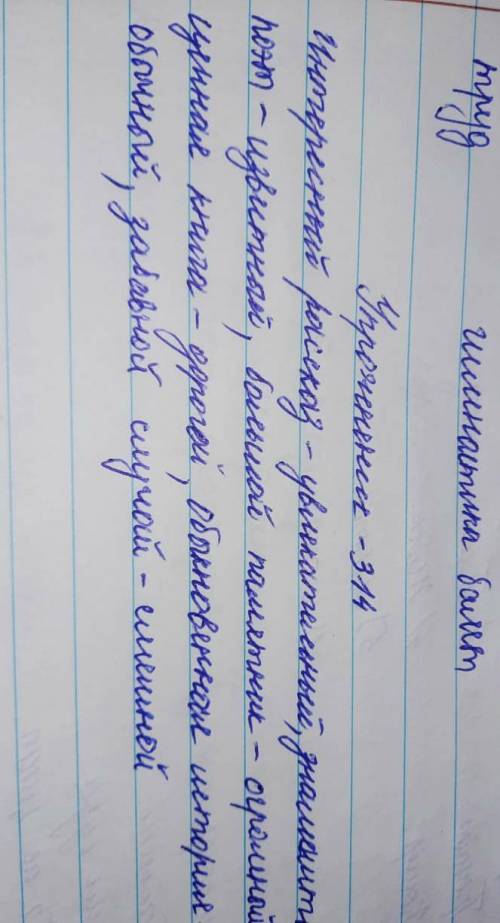 труд гимнастика балет
Упрожнение - 314
Интересный росской - увыкательный, знаменит
поэт - извитный, большой памятник - огромной
ценная книга - дорогой, обыкновенная история
обычный, забавной случай - смешной